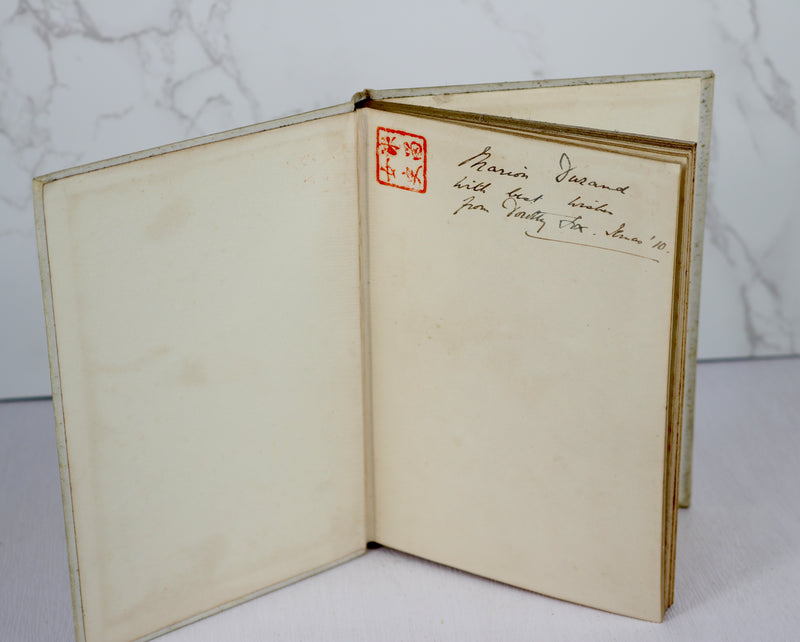 Marion Durand
with best wishes
from Dorothy Fox. Xmas '10.